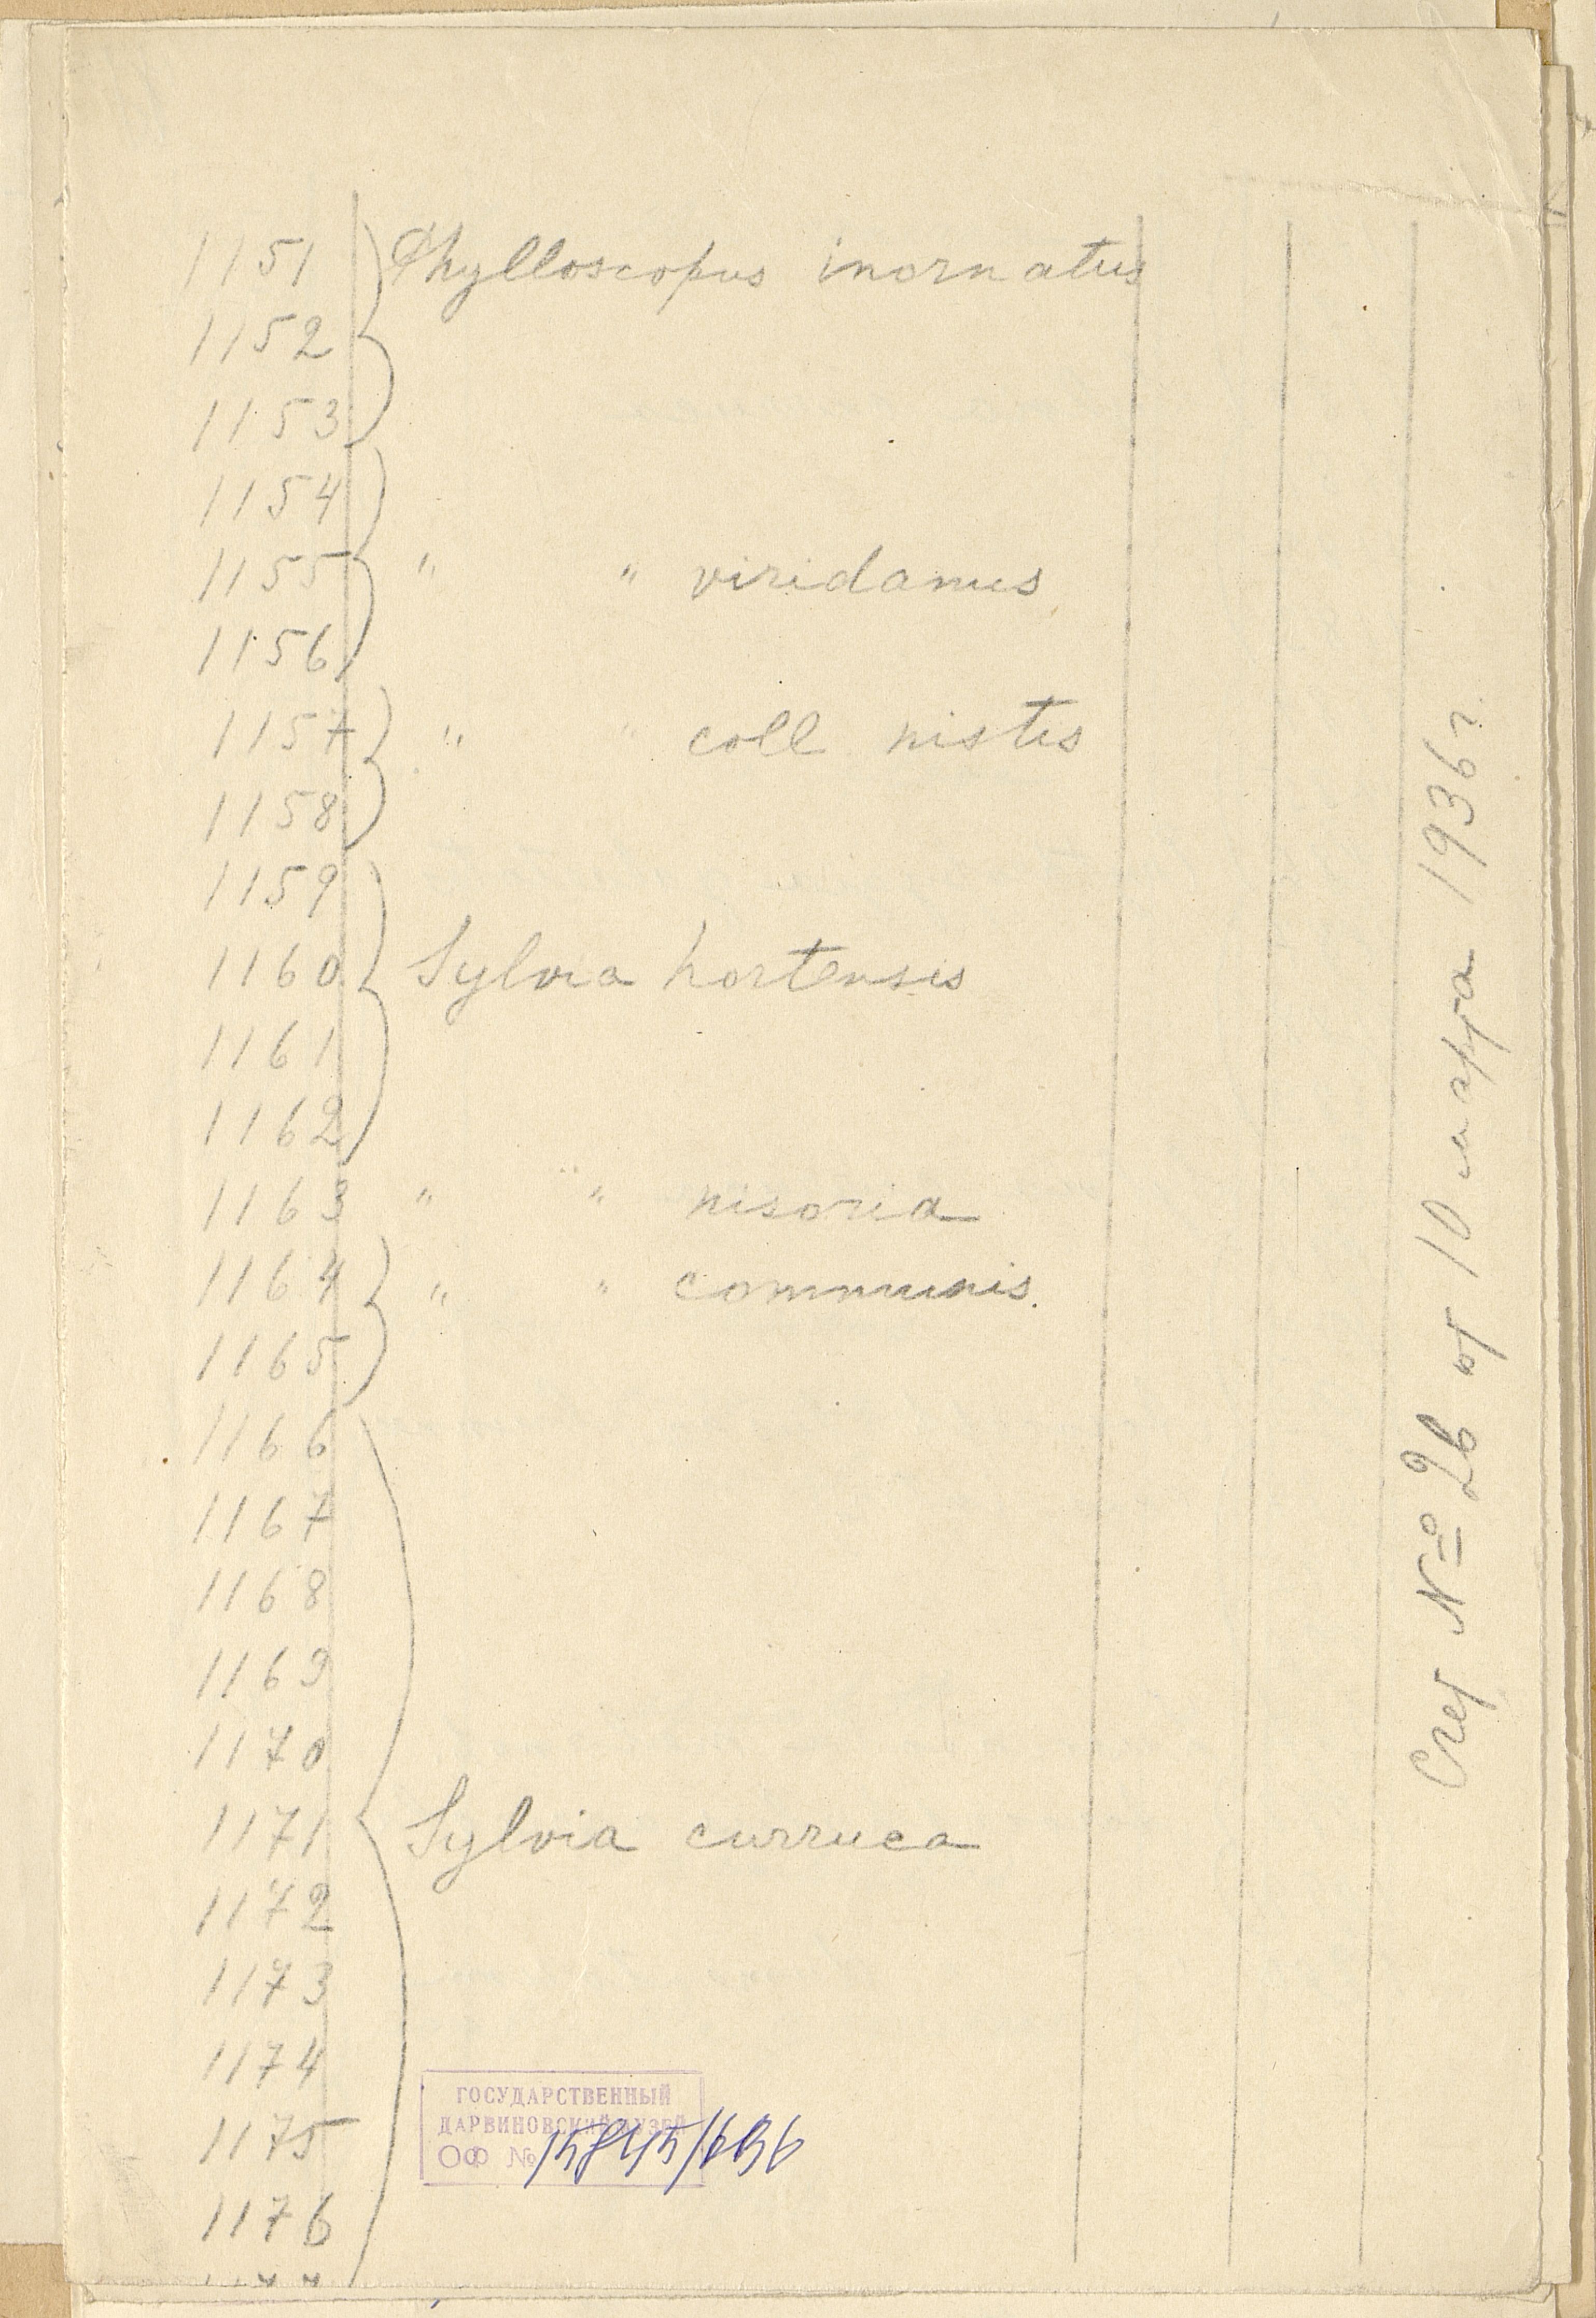 1151 Phylloscopus inornatus
1152
1153
1154
1155 " " viridanus
1156
1157 " " coll nistis
1158
1159
1160 Sylvia hortensis
1161
1162
1163 " " nisoria
1164 " " communis.
1165
1166
1167
1168
1169
1170
1171 Sylvia curruca
1172
1173
1174
1175
1176
Счет № 2в от 10 марта 1936 г.
ГОСУДАРСТВЕННЫЙ
ДАРВИНОВСКИЙ МУЗЕЙ
ОФ № 15845/696